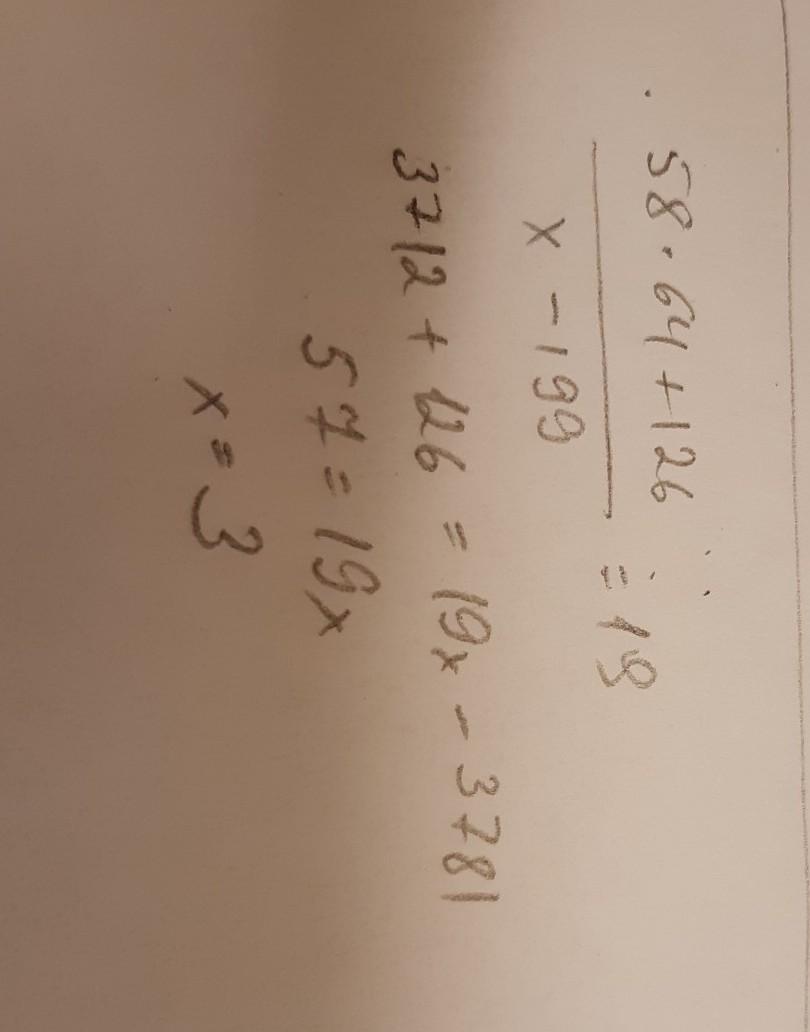 58 · 64 + 126
x - 199
= 19
3712 + 126 = 19x - 3781
57 = 19x
x = 3